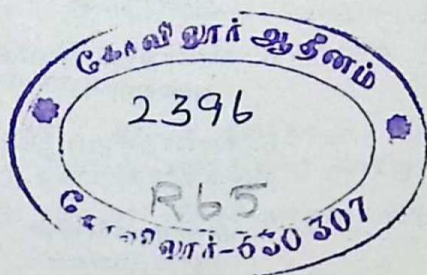 கோவிலூர் ஆதீனம்
2396
R65
கோவிலூர்-630 307